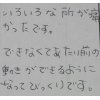 いろいろな所が痛
かったです。
できなくてあたり前の
動きができるように
なってびっくりです。